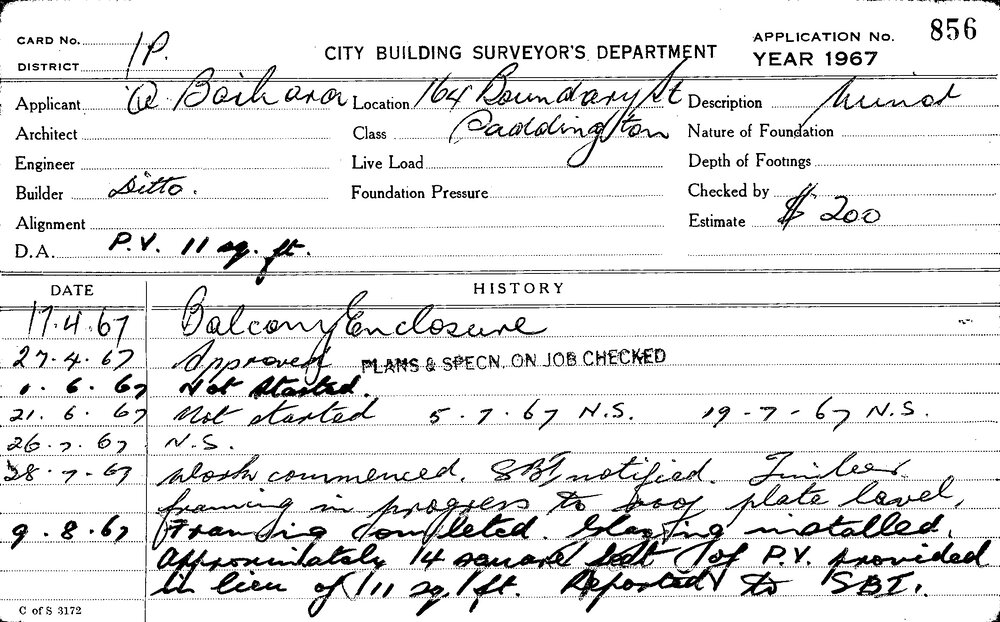 CARD No. 1P. CITY BUILDING SURVEYOR'S DEPARTMENT APPLICATION No. 856
DISTRICT YEAR 1967
Applicant Location 164 Boundary St Description
Architect Class Paddington Nature of Foundation
Engineer Live Load Depth of Footings
Builder Ditto. Foundation Pressure Checked by
Alignment Estimate $ 200
D.A. P.V. 11 sq. ft.
DATE HISTORY
17.4.67 Balcony Enclosure
27.4.67 Approved PLANS & SPECN. ON JOB CHECKED
1.6.67 Not Started.
21.6.67 Not started 5.7.67 N.S. 19-7-67 N.S.
26.7.67 N.S.
28.7.67 Work commenced. SBI notified. Timber
framing in progress to roof plate level.
9.8.67 Framing completed. Glazing installed.
Approximately 14 square feet of P.V. provided
in lieu of 11 sq/ft. Reported to SBI.
C of S 3172